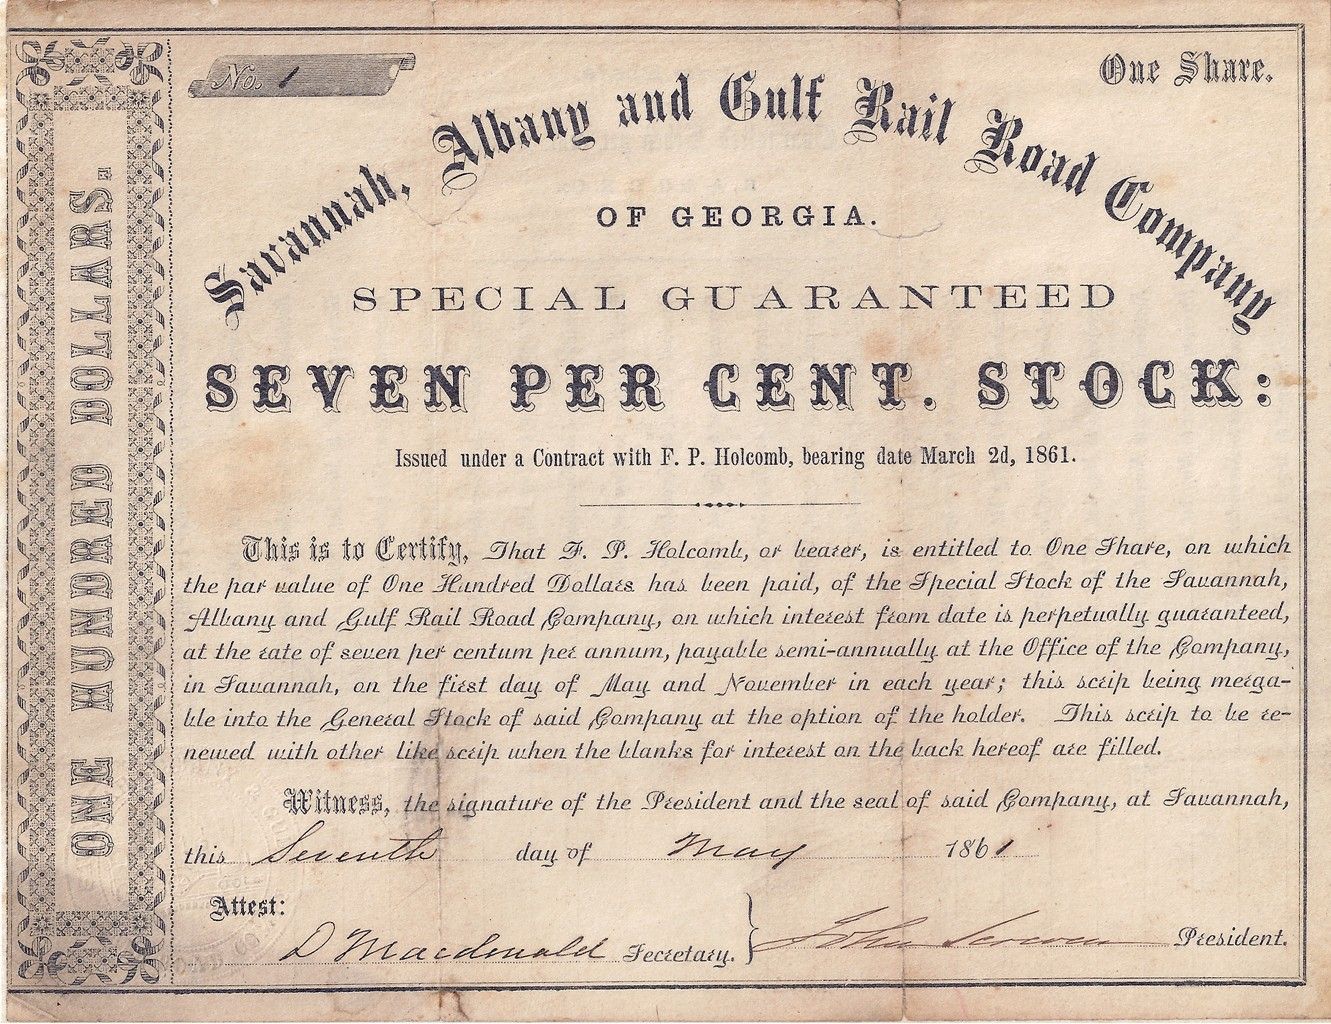 No. 1
One Share.
Savannah, Albany and Gulf Rail Road Company
OF GEORGIA.
SPECIAL GUARANTEED
SEVEN PER CENT. STOCK:
Issued under a Contract with F. P. Holcomb, bearing date March 2d, 1861.
This is to Certify, That F. P. Holcomb, or bearer, is entitled to One Share, on which
the par value of One Hundred Dollars has been paid, of the Special Stock of the Savannah,
Albany and Gulf Rail Road Company, on which interest from date is perpetually guaranteed,
at the rate of seven per centum per annum, payable semi-annually at the Office of the Company,
in Savannah, on the first day of May and November in each year; this scrip being merga-
ble into the General Stock of said Company at the option of the holder. This scrip to be re-
newed with other like scrip when the blanks for interest on the back hereof are filled.
Witness, the signature of the President and the seal of said Company, at Savannah,
this Seventh day of May 1861
Attest:
D Macdonald Secretary. John Screven President.
ONE HUNDRED DOLLARS.